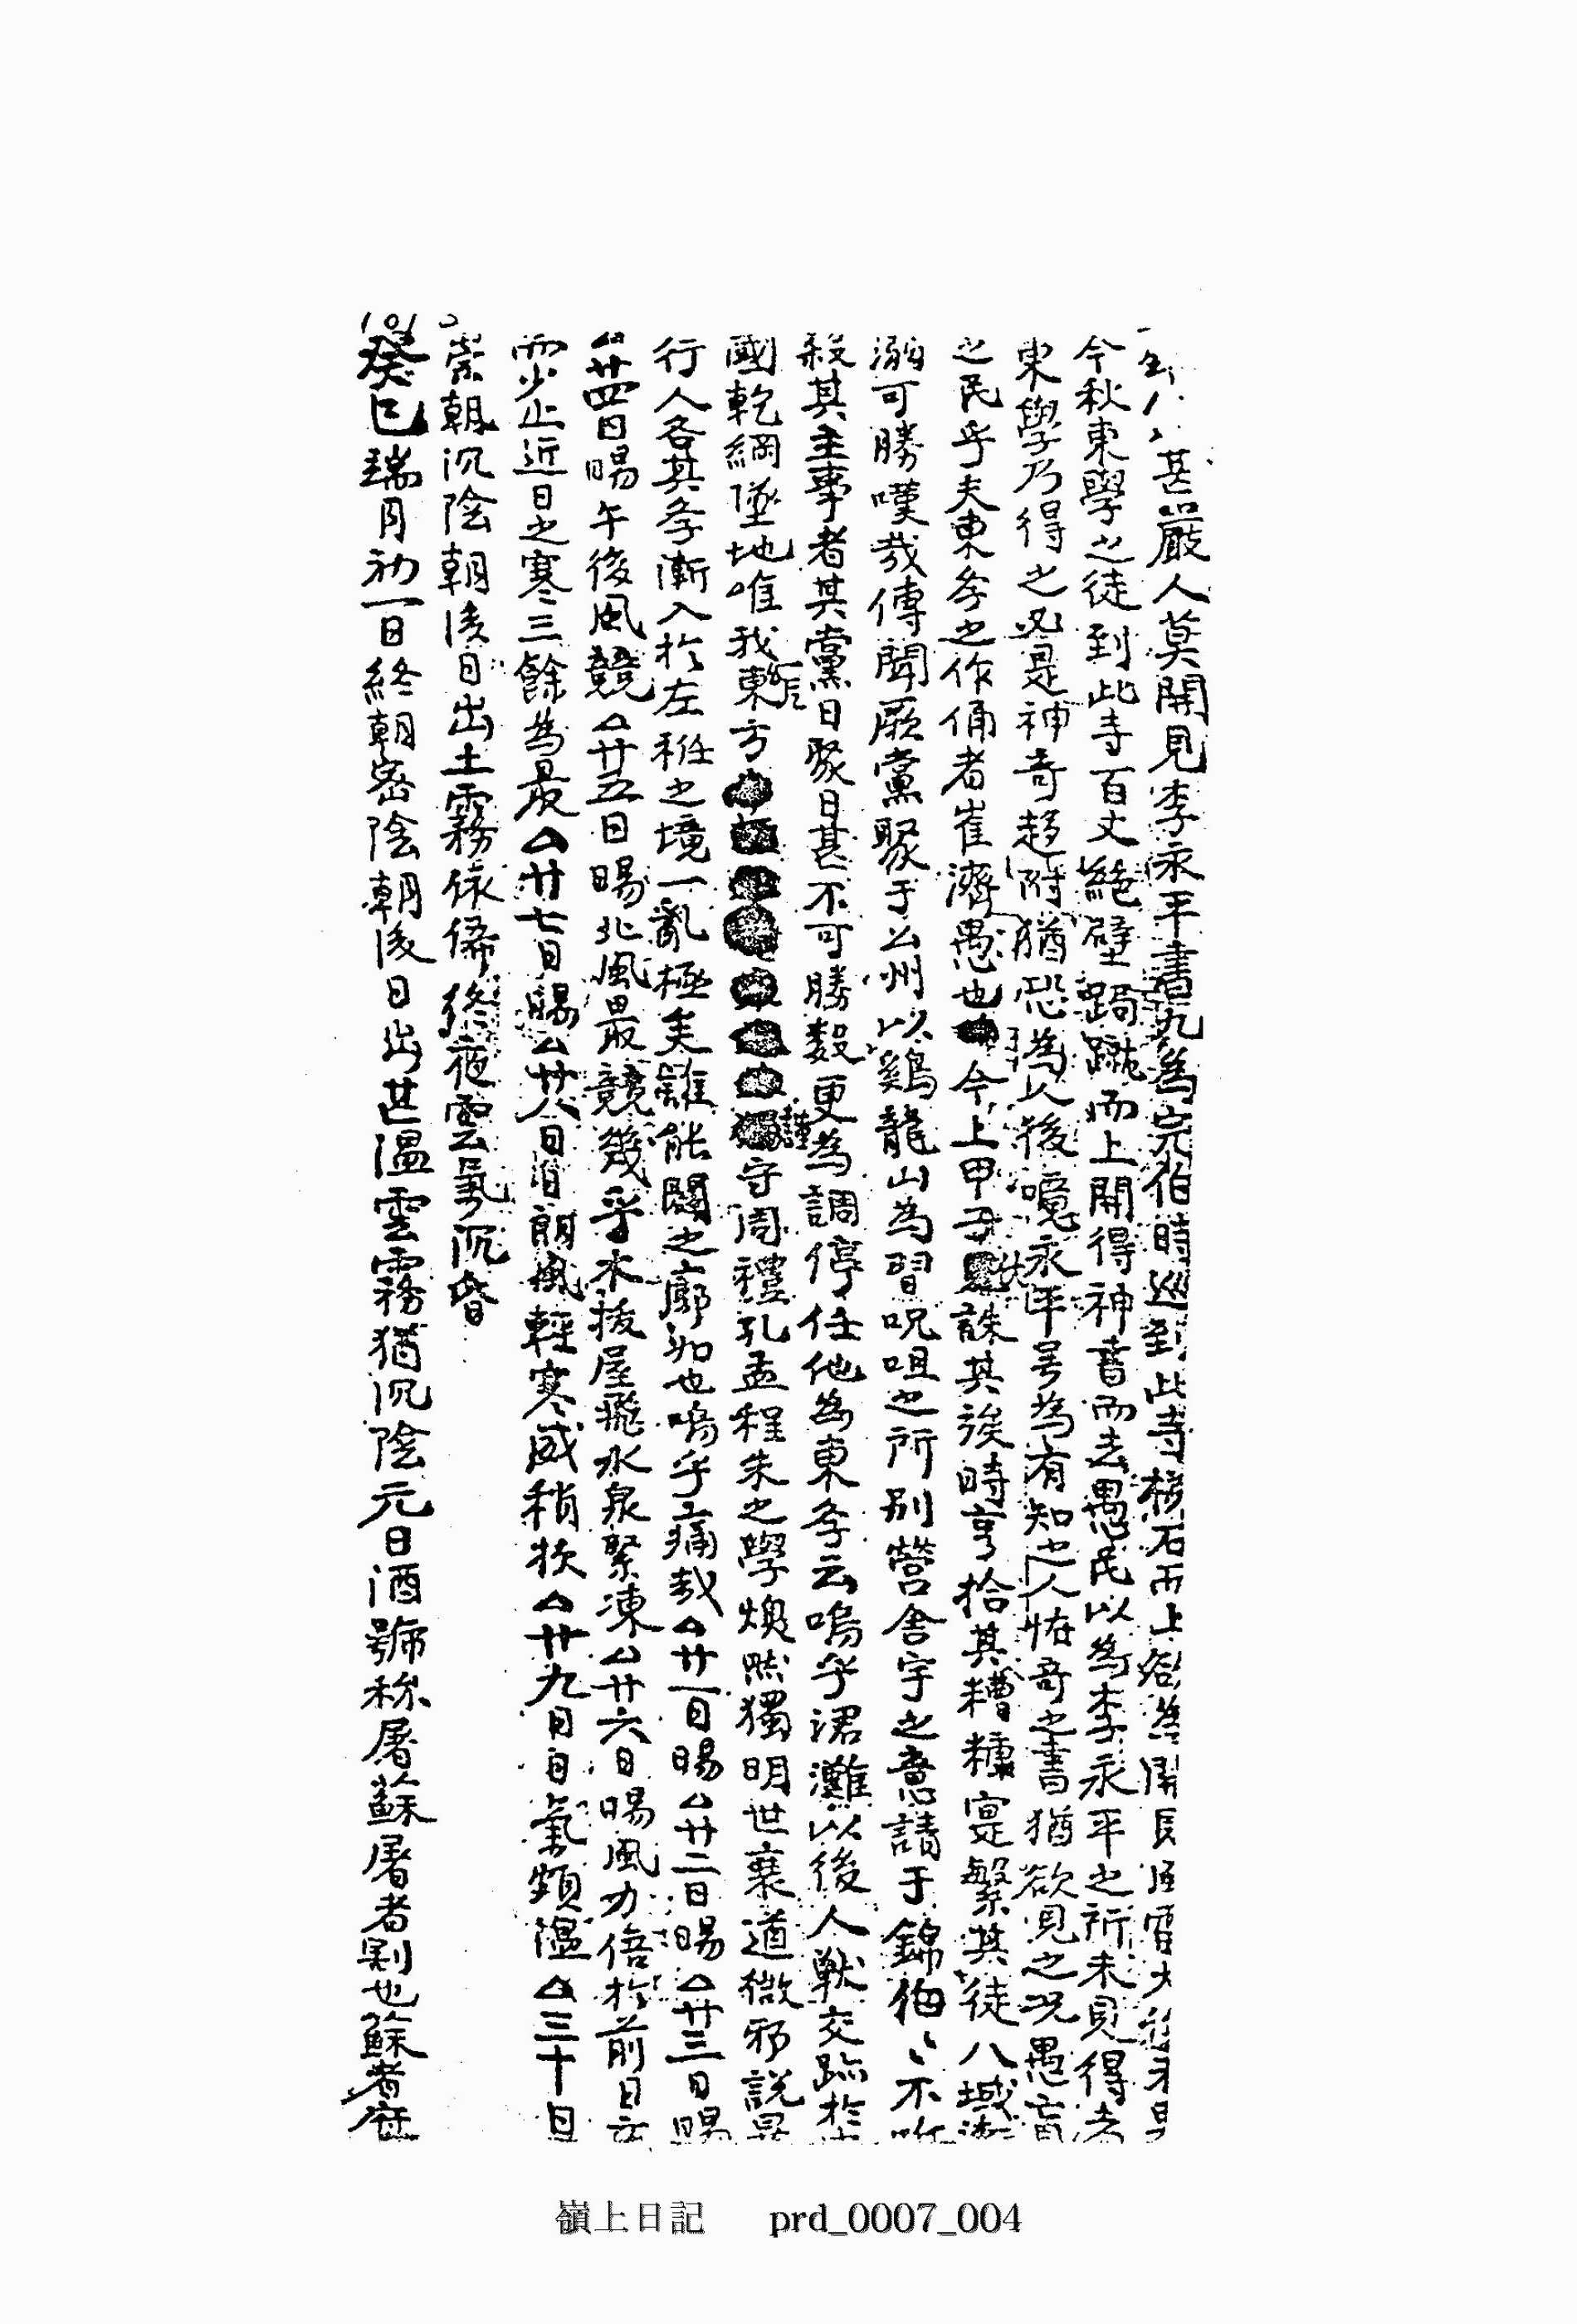 甚嚴人莫開見李永平書九爲完伯時巡到此寺梯石而上欲爲開
今秋東學之徒到此寺百丈絶壁跼蹴而上開得神書而去愚民以爲李永平之所未見得者
東學乃得之必是神奇趍附猶恐爲以後噫永平号爲有知之人怪奇之書猶欲見之况愚盲
之民乎夫東孝之作俑者崔濟愚也今上甲子誅其後時亨拾其糟糠寔繁其徒八域
溺可勝嘆哉傳聞厥黨聚于公州以鷄龍山為習呪咀之所别營舍宇之意請于錦伯〻不
殺其主事者其黨日聚日甚不可勝數更為調停任他為東孝云嗚乎涒灘以後人獸交跡於
國乾綱墜地唯我東方謹守周禮孔孟程朱之學煥然獨明世衰道微邪説
行人各其孝漸入於左衽之境一亂極矣誰能闢之廓如也嗚乎痛哉△廿一日暘△廿二日暘△廿三日暘
△廿四日暘午後風競△廿五日暘北風最競幾乎木拔屋飛水泉緊凍△廿六日暘風力倍於前日
少止近日之寒三餘為最△廿七日暘△廿八日自朗風輕寒威稍歇△廿九日日氣頗溫△三十日
崇朝沉陰朝後日出土霧依俙終夜雲氣沉昏
癸巳瑞月初一日終朝密陰朝後日出甚溫雲霧猶沉陰元日酒號称屠蘇屠者剔也蘇者
嶺上日記 prd_0007_004